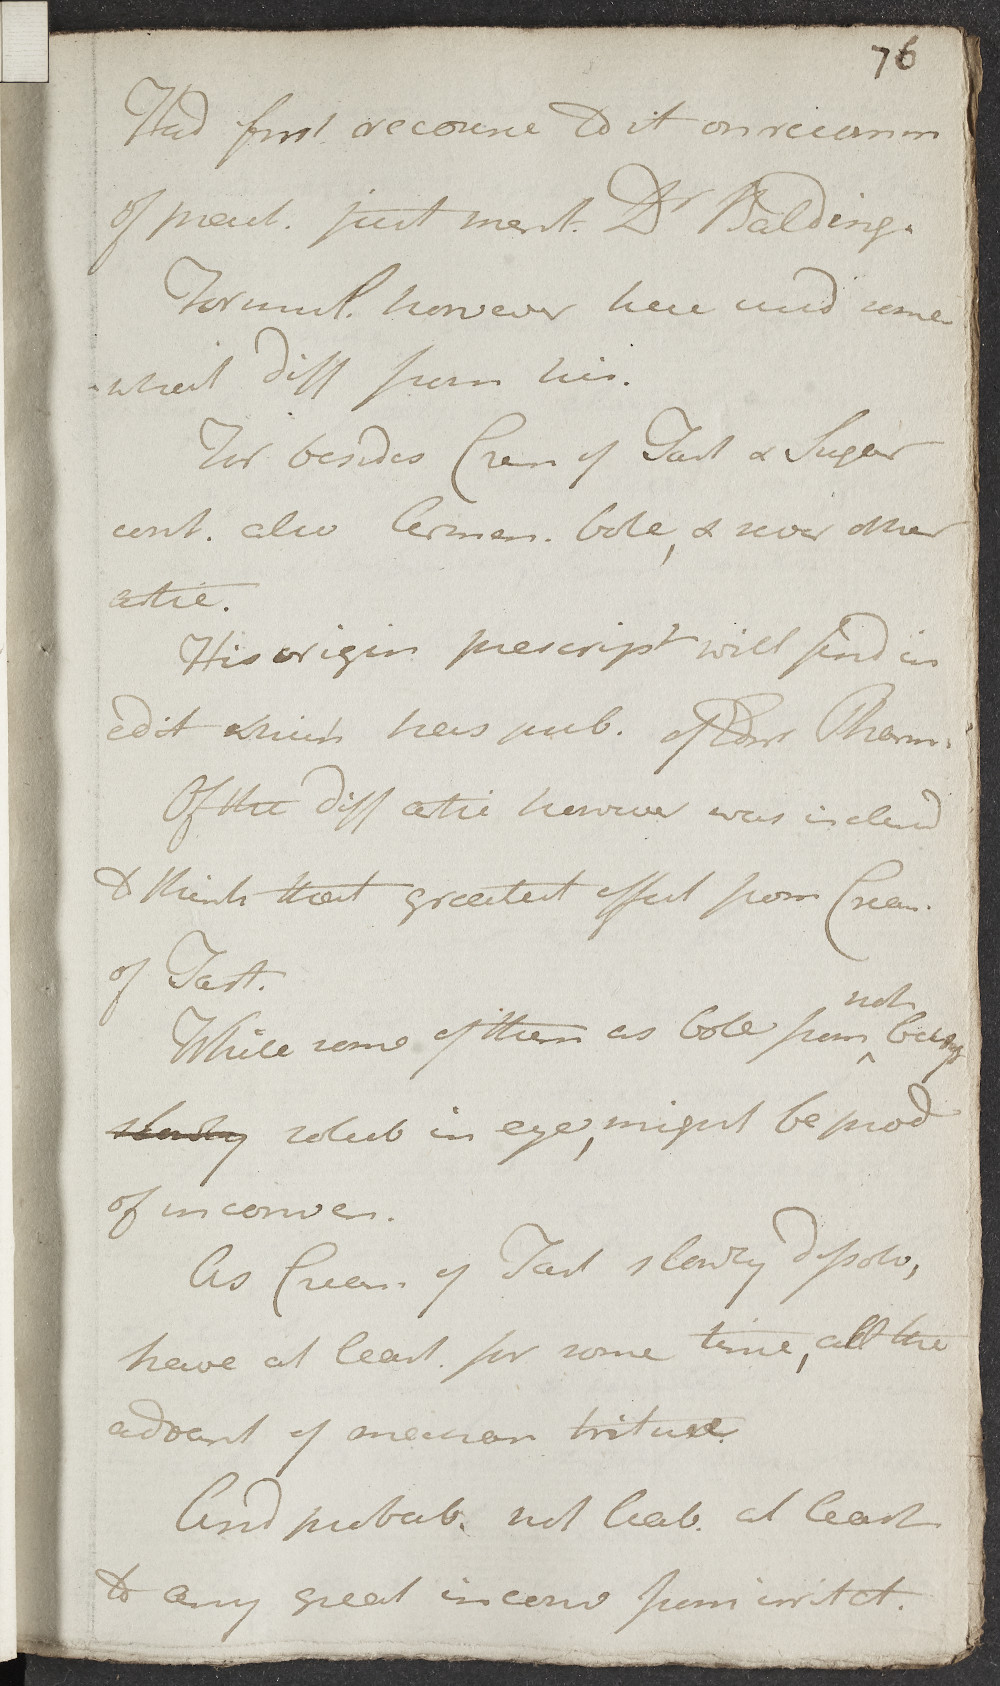 76
Had first recourse to it on recomm
of pract. just ment. Dr Balding.
Formul. however here used some
-what diff from his.
For besides Cream of Tart & Sugar
cont. also Armen. bole, & sever other
artic.
His origin prescript will find in
edit which has pub. of Edinr Pharm.
Of the diff artic however was inclind
to think that greatest effect from Cream.
of Tart.
While some of them as bole from not being
slowly solub in eye, might be prod
of inconven.
As Cream of Tart slowly dissolv,
have at least for some time, all the
advant of mechan triture.
And probab. not liab. at least
to any great inconv from irritat.